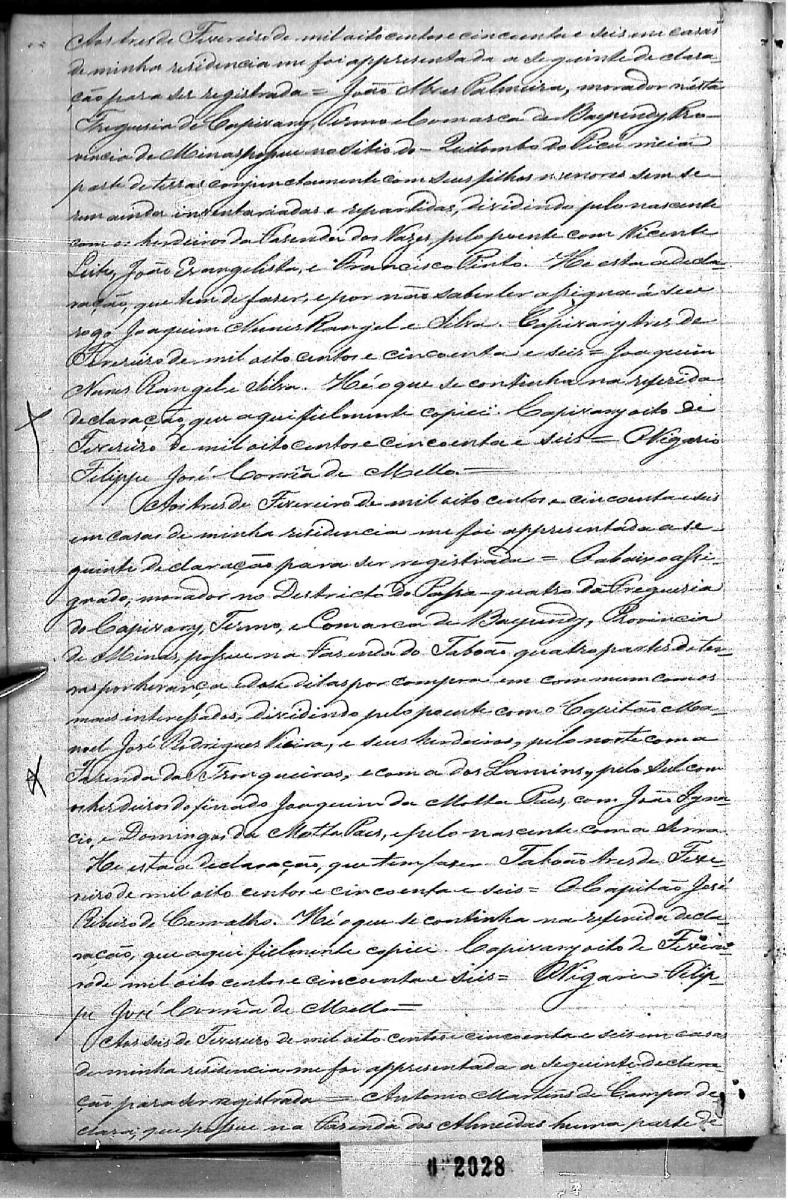 Aos tres de Fevereiro de mil oito centos e cincoenta e seis em casas
de minha residencia me foi appresentada a seguinte decla-
ração para ser registrada = João Alves Palmeira, morador nésta
Freguesia de Capivary, Termo e Comarca de Baependy, Pro-
vincia de Minas possue no sitio do Quilombo do Picu meia
parte de terras conjunctamente com seus filhos menores sem se-
rem ainda inventariadas e repartidas, dividindo pelo nascente
com os herdeiros da Fazenda dos Vazes, pelo poente com Vicente
Leite, João Evangelista, e Francisco Pinto. He esta a decla-
ração, que tem de fazer, e por não saber ler assigna á seu
rogo Joaquim Nunes Rangel e Silva. Capivary tres de
Fevereiro de mil oito centos e cincoenta e seis = Joaquim
Nunes Rangel e Silva. Hé o que se continha na referida
declaração, que aqui fielmente copiei. Capivary oito de
Fevereiro de mil oito centos e cincoenta e seis = O Vigario
Filippe José Corrêa de Mello =
Aos tres de Fevereiro de mil oito centos e cincoenta e seis
em casas de minha residencia me foi appresentada a se-
guinte declaração para ser registrada = O abaixo assi-
gnado, morador no Destricto do Passa-quatro da Freguesia
do Capivary, Termo, e Comarca de Baependy, Provincia
de Minas, possue na Fazenda do Taboão quatro partes de ter-
ras por herança e dose ditas por compra em commum com os
mais interessados, dividindo pelo poente com o Capitão Ma-
noel José Rodrigues Vieira, e seus herdeiros, pelo norte com a
Fazenda das Tronqueiras, e com a dos Lamins, pelo sul com
os herdeiros do finado Joaquim da Motta Paes, com João Igna-
cio, e Domingos da Motta Paes, e pelo nascente com a Serra.
He esta a declaração, que tem fazer. Taboão tres de Feve-
reiro de mil oito centos e cincoenta e seis = O Capitão José
Ribeiro de Carvalho. Hé o que se continha na referida decla-
ração, que aqui fielmente copiei. Capivary oito de Feverei-
ro de mil oito centos e cincoenta e seis = O Vigario Filip-
pe José Corrêa de Mello =
Aos seis de Fevereiro de mil oito centos e cincoenta e seis em casas
de minha residencia me foi appresentada a seguinte declara-
ção para ser registrada = Antonio Martins de Campos de-
clara, que possue na Fazenda dos Almeidas huma parte de
2028